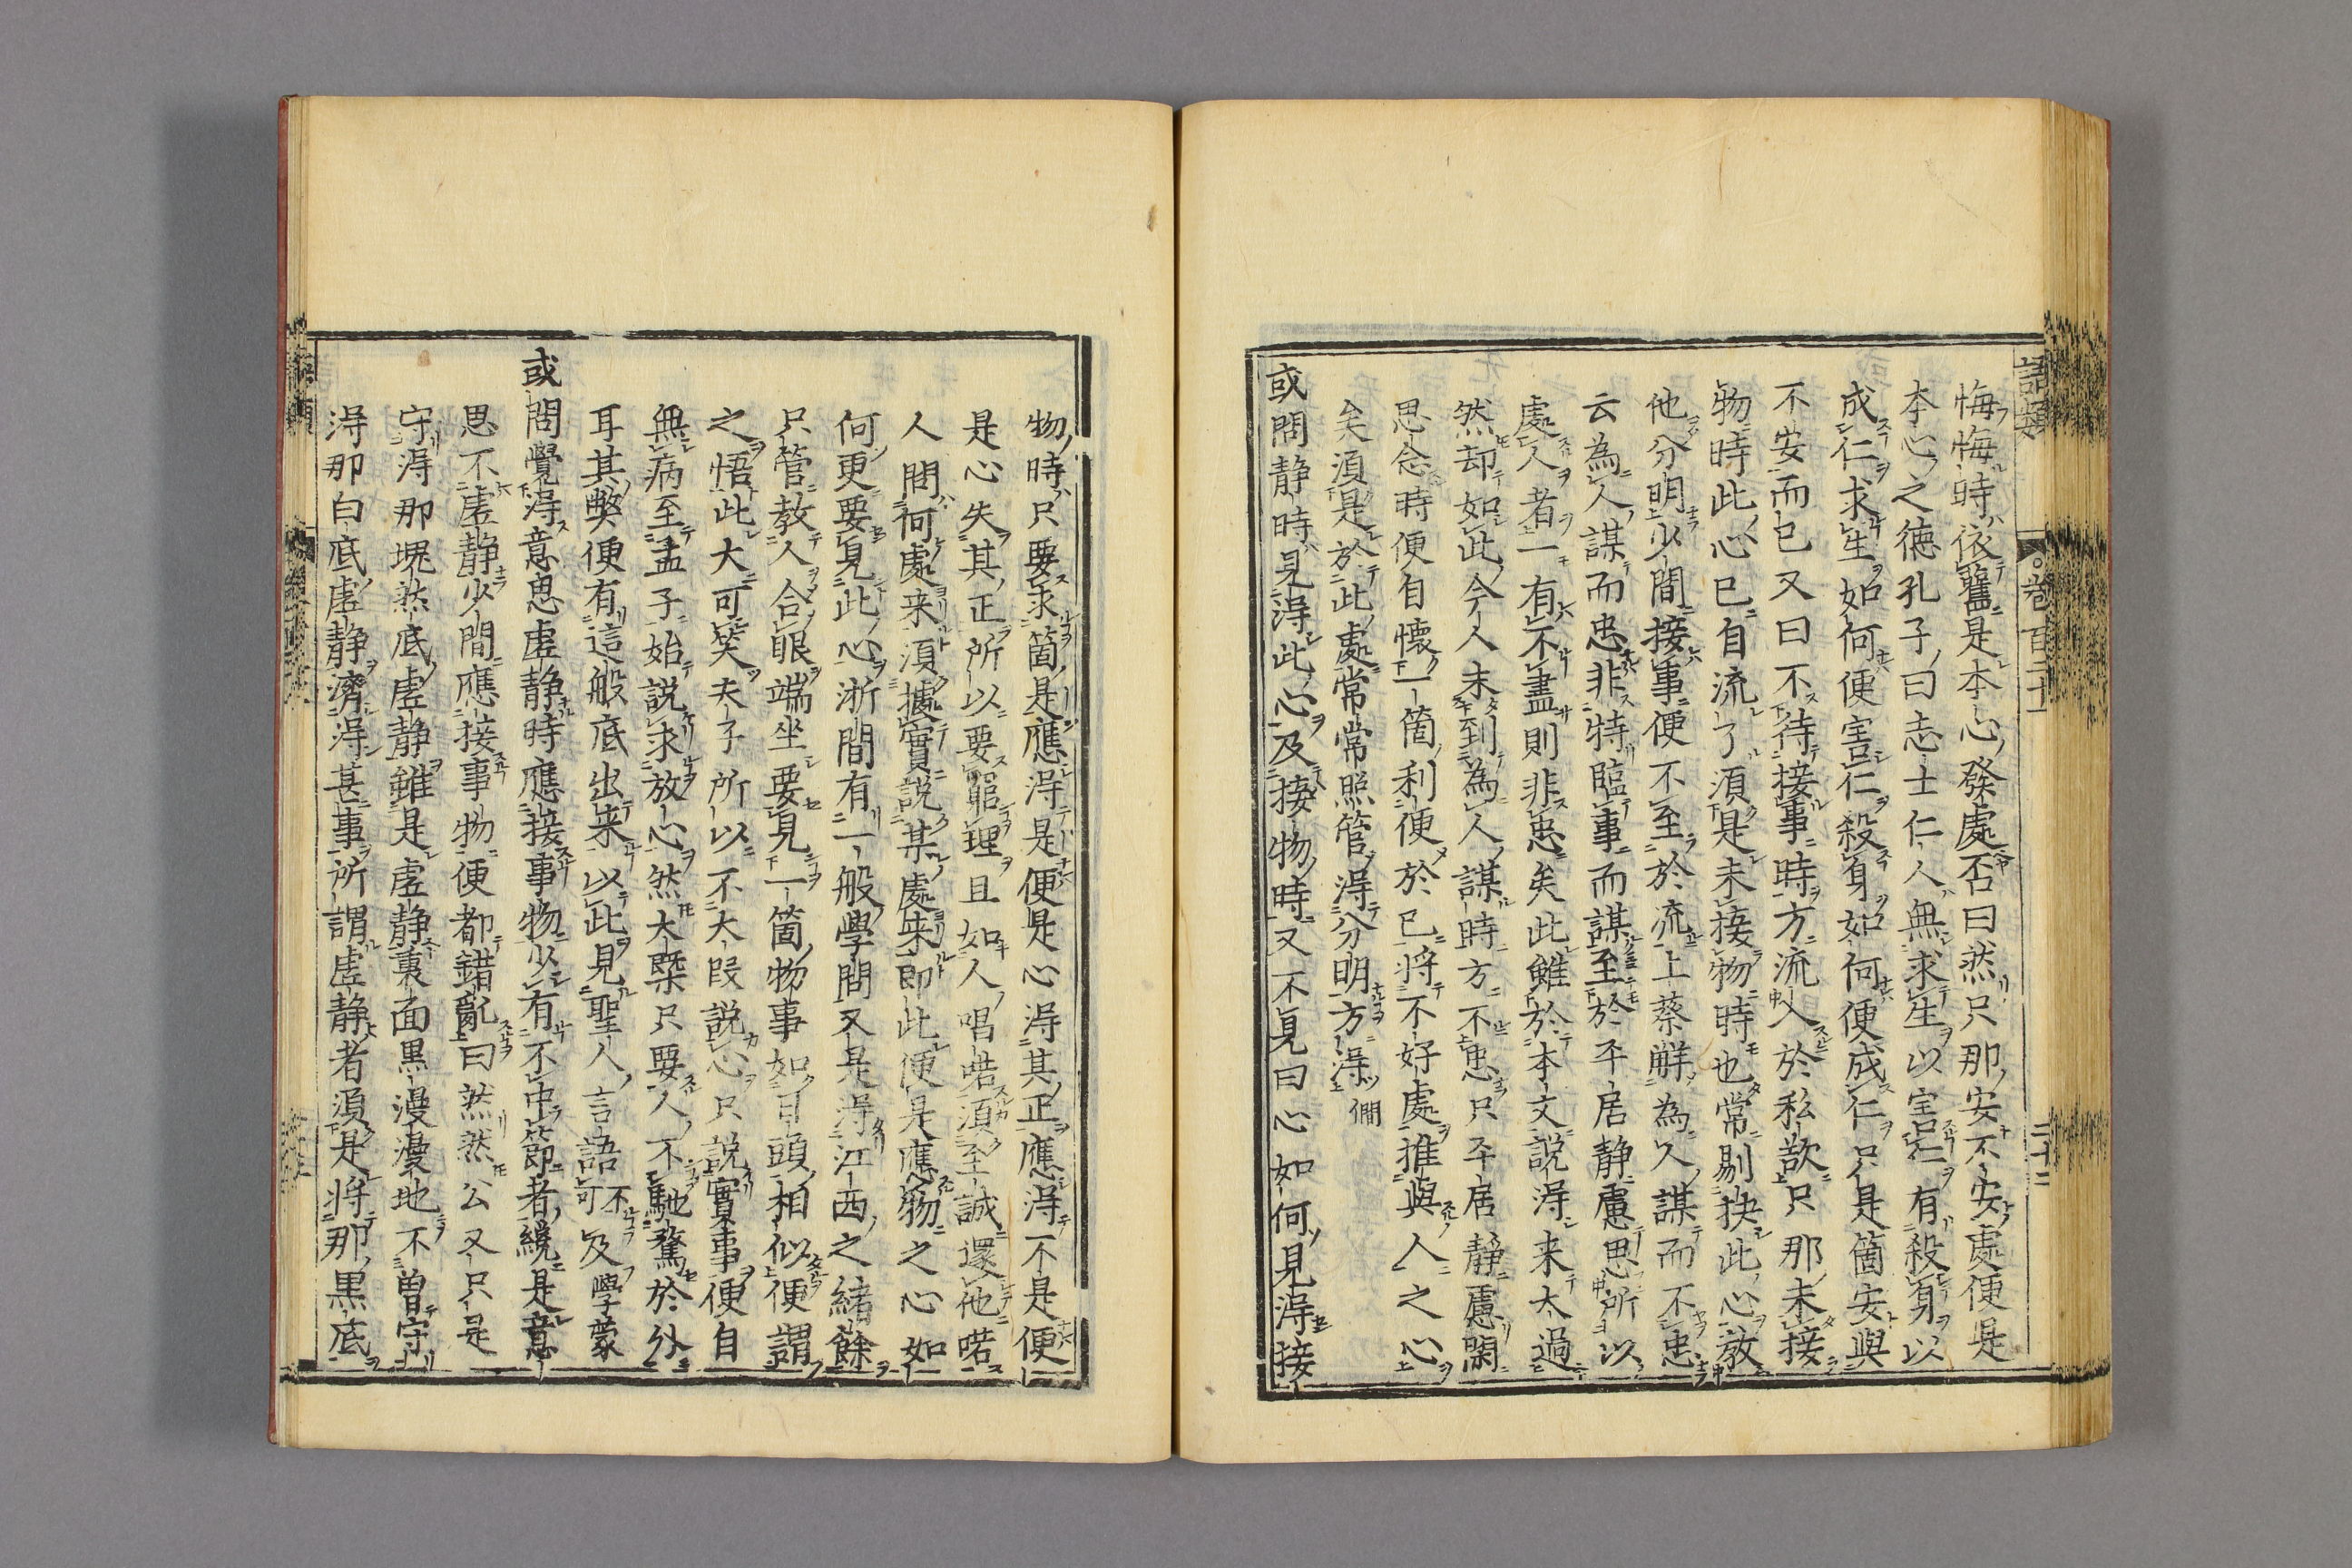 語類　卷百二十一　二十二
悔悔時依舊是本心發處否曰然只那安不安處便是
本心之德孔子曰志士仁人無求生以害仁有殺身以
成仁求生如何便害仁殺身如何便成仁只是箇安與
不安而已又曰不待接事時方流入於私欲只那未接
物時此心已自流了須是未接物時也常剔抉此心教
他分明少間接事便不至於流上蔡解為人謀而不忠
云為人謀而忠非特臨事而謀至於平居靜慮思所以
處人者一有不盡則非忠矣此雖於本文說得来太過
然却如此今人未到為人謀時方不忠只平居靜慮閑
思念時便自懐一箇利便於已将不好處推與人之心
矣須是於此處常常照管得分明方得 僩
或問静時見得此心及接物時又不見曰心如何見得接
物時只要求箇是應得是便是心得其正應得不是便
是心失其正所以要窮理且如人唱喏須至誠還他喏
人問何處来須據實說某處来即此便是應物之心如
何更要見此心浙間有一般學問又是得江西之緒餘
只管教人合眼端坐要見一箇物事如日頭相似便謂
之悟此大可笑夫子所以不大段說心只說實事便自
無病至孟子始說求放心然大槩只要人不馳騖於外
耳其弊便有這般底出来以此見聖人言語不可及 學蒙
或問覺得意思虛静時應接事物少有不中節者纔是意
思不虛静少間應接事物便都錯亂曰然然公又只是
守得那塊然底虛静雖是虛静裏面黒漫漫地不曽守
得那白底虛静濟得甚事所謂虛静者須是将那黒底